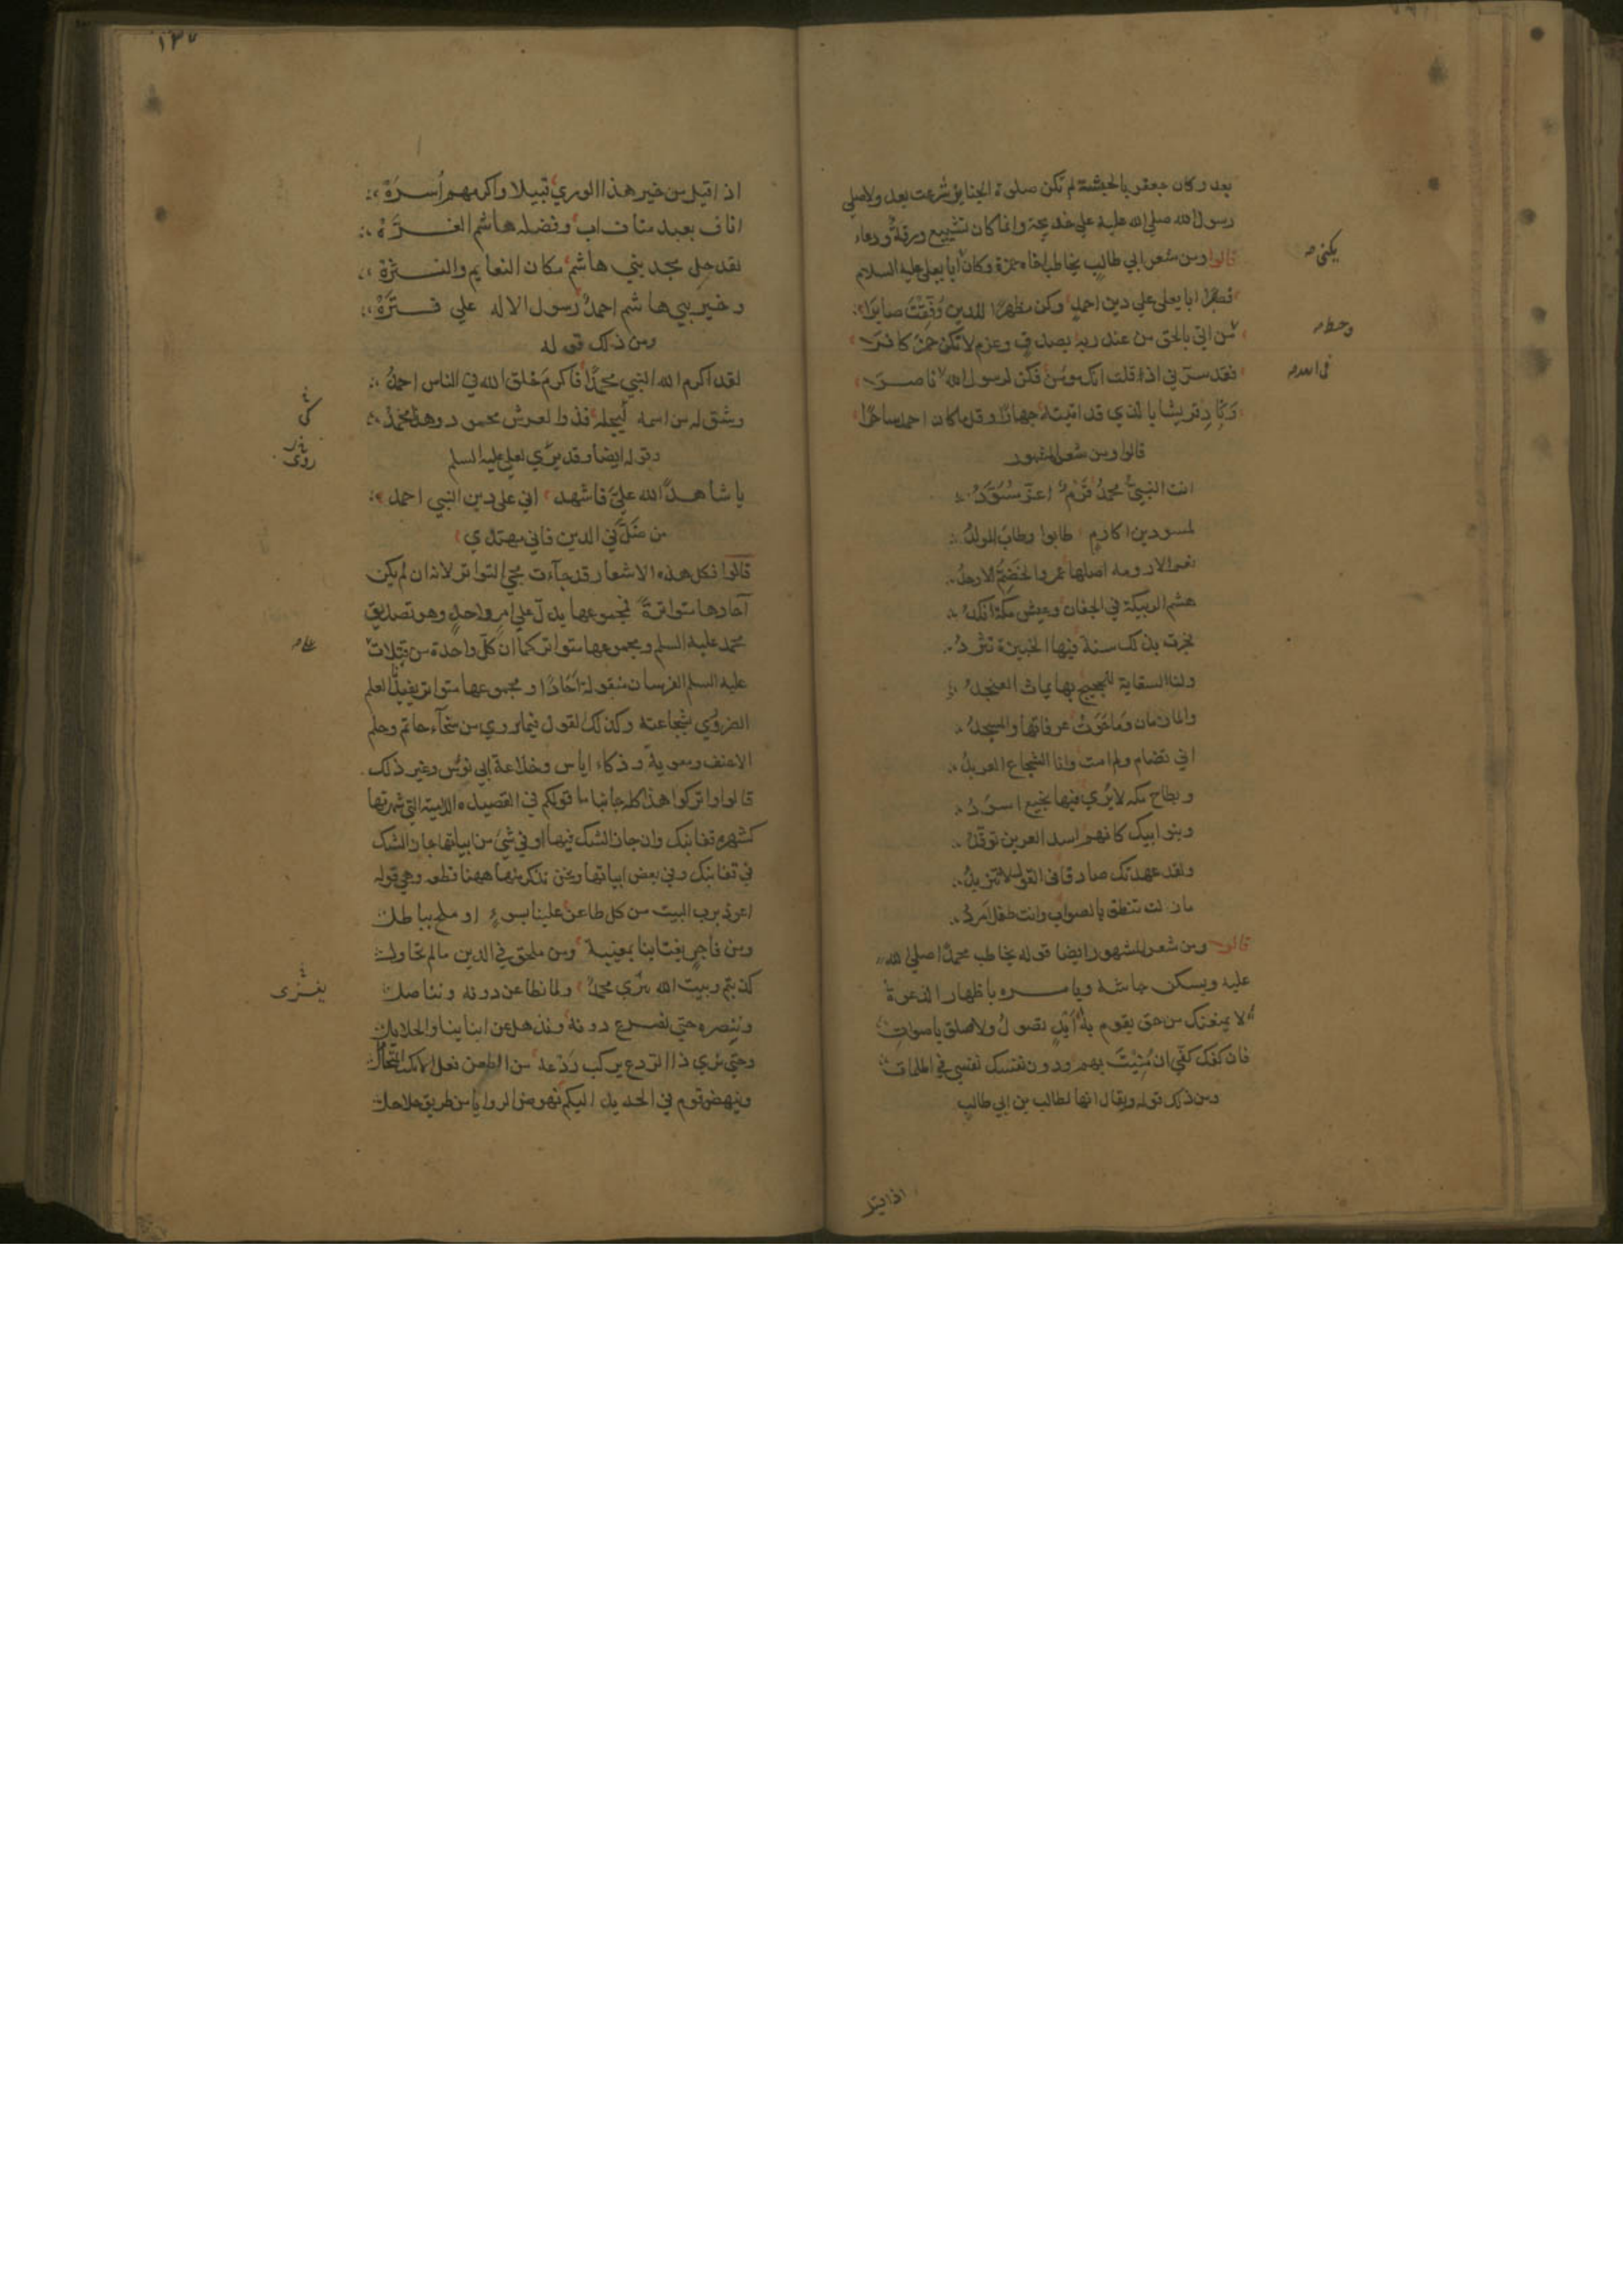 بعد وكان جعفر بالحبشة لم تكن صلوة الجنايز شرعت بعد ولا صلى
رسول الله صلي الله عليه علي خديجة وانما كان تشييع ورقة ودعاء
قالوا ومن شعر ابي طالب يخاطب اخاه حمزة وكان ابا يعلي عليه السلام
يكنى
فصبرًا ابا يعلى علي دين احمد وكن مظهرًا للدين وُفّقتَ صابرا
من اتي بالحق من عند ربه بصدق وعزم لا تكن حمز كافرا
وحط
فقد سرّني اذ قلت انك مومن فكن لرسول الله ناصرا
في الله
وناد قريشا بالذي قد اتيته جهارًا وقل ما كان احمد ساحرًا
قالوا ومن شعره المشهور
انت النبي محمدُ قرم اعزّ مسوّدُ
لمسودين اكارمٍ طابوا وطاب المولدُ
نعم الارومه اصلها عمرو الخضمّ الاوحدُ
هشم الربيكة في الجفان وعيش مكة انكدُ
فجرت بذلك سنة فيها الخبيزة تثردُ
ولنا السقاية للحجيج بها يماث العنجدُ
والمازمان وما حَوَت عرفاتها والمسجدُ
اني تضام ولم امت وانا الشجاع العربدُ
وبطاح مكه لا يُري فيها نجيع اسودُ
وبنو ابيك كانهم اسد العرين توقّدُ
ولقد عهدتك صادقا في القول لا تتزيدُ
ما زلت تنطق بالصواب وانت طفل امردُ
قالوا ومن شعره المشهور ايضا قوله يخاطب محمدًا صلي الله
عليه ويسكن جاشه ويامره باظهار الدعوة
لا يمنعنك من حق يقوم به ايدٍ تصولُ ولا سلق باصواتِ
فان كفك كفّي ان مُنِيتَ بهم ودون نفسك نفسي في الملمات
ومن ذلك قوله ويقال انها لطالب بن ابي طالب
اذا قيل
١٣٧
اذا قيل من خير هذا الوري قبيلا واكرمهم أسرة
اناف بعبد مناف اب وفضله هاشم الغرّة
لقد حل مجد بني هاشم مكان النعايم والنثرة
وخير بني هاشم احمدُ رسول الاله علي فترَة
ومن ذلك قوله
لقد اكرم الله النبي محمدًا فاكرم خلق الله في الناس احمدُ
وشق له من اسمه ليجله فذو العرش محمود وهذا محمدُ
وقوله ايضا وقد يُروي لعلي عليه السلم
يا شاهد الله عليّ فاشهد اني علي دين النبي احمد
من ضلّ في الدين فاني مهتدي
قالوا فكل هذه الاشعار قد جآءت مجي التواتر لانه ان لم يكن
آحادها متواترةً فمجموعها يدل علي امر واحد وهو تصديق
محمد عليه السلم ومجموعها متواتر كما ان كلّ واحدة من قتلات
عليه السلم الفرسان منقولة آحادًا ومجموعها متواتر يفيدنا العلم
الضروري بشجاعته وكذلك القول فيما روي من سخآء حاتم وحلم
الاحنف ومعوية وذكاء اياس وخلاعة ابي نوس وغير ذلك
قالوا واتركوا هذا كله جانبا ما قولكم في القصيده اللامية التي شهرتها
كشهرة قفا نبك وان جاز الشك فيها او في شي من ابياتها جاز الشك
في قفا نبك وفي بعض ابياتها ونحن نذكر منها ههنا قطعه وهي قوله
اعوذ برب البيت من كل طاعن علينا بسوءٍ او ملح بباطل
ومن فاجرٍ يغتابنا بمغيبة ومن ملحق في الدين ما لم نحاول
كذبتم وبيت الله يُبزي محمدُ ولما نطاعن دونه ونناضل
وننصره حتي نصرع دونه ونذهل عن ابناينا والحلايل
وحتي نري ذا الردع يركب رَدْعَه من الطعن فعل الانكب المتحامل
وينهض قوم في الحديد اليكم نهوض الروايا من طريق جلاجل